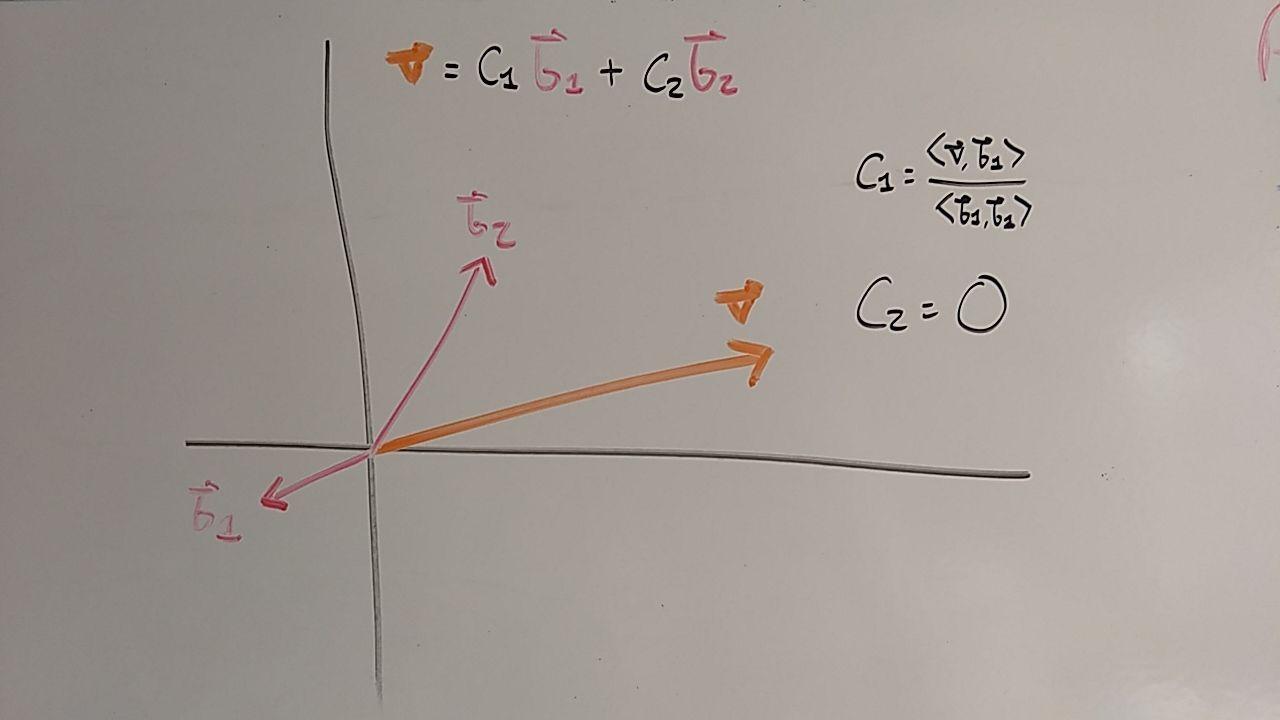 v⃗ = C₁ b⃗₁ + C₂ b⃗₂
C₁ = <v⃗, b⃗₁> / <b⃗₁, b⃗₁>
b⃗₂
v⃗
C₂ = 0
b⃗₁